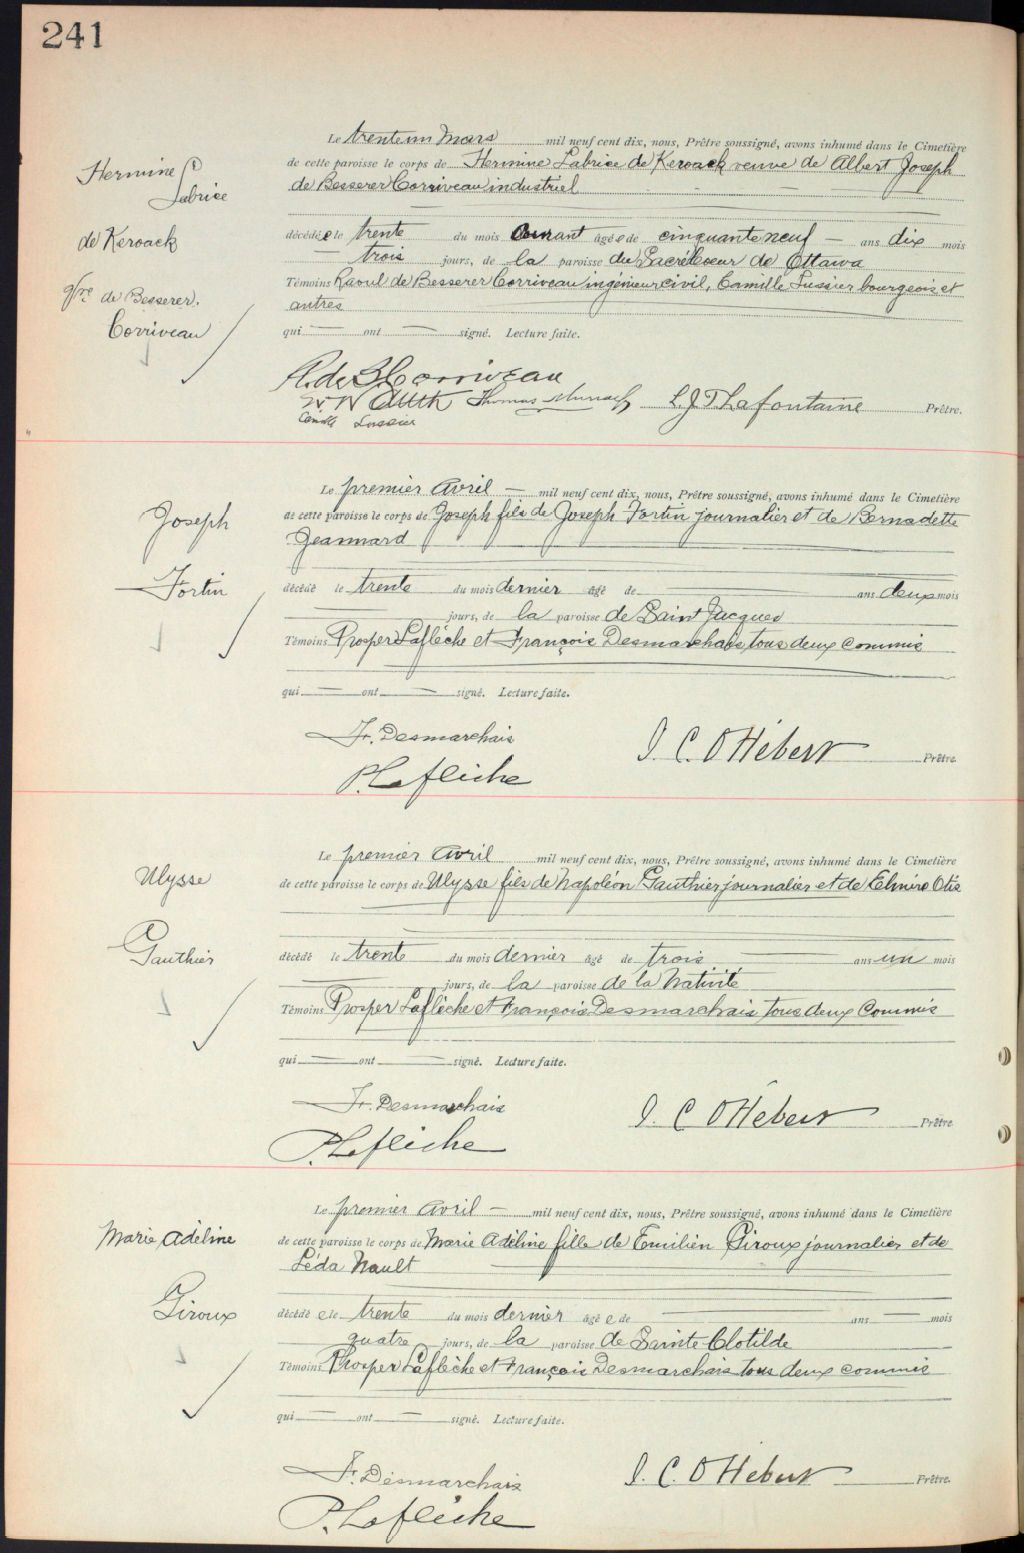 241
Hermine
Labrice
de Keroack
vve de Besserer.
Corriveau
Le trente un Mars mil neuf cent dix, nous, Prêtre soussigné, avons inhumé dans le Cimetière
de cette paroisse le corps de Hermine Labrice de Keroack veuve de Albert Joseph
de Besserer Corriveau industriel
décédée le trente du mois courant âgée de cinquante neuf — ans dix mois
— trois jours, de la paroisse du Sacré Coeur de Ottawa
Témoins Raoul de Besserer Corriveau ingénieur civil, Camille Lussier bourgeois et
autres
qui — ont — signé. Lecture faite.
R. de B. Corriveau
Thomas L. J. T. Lafontaine Prêtre.
Camille Lussier
Joseph
Fortin
Le premier Avril — mil neuf cent dix, nous, Prêtre soussigné, avons inhumé dans le Cimetière
de cette paroisse le corps de Joseph fils de Joseph Fortin journalier et de Bernadette
Jeannard
décédé le trente du mois dernier âgé de — ans deux mois
jours, de la paroisse de Saint Jacques
Témoins Prosper Laflèche et François Desmarchais, tous deux commis
qui — ont — signé. Lecture faite.
Fr. Desmarchais
J. C. O Hébert Prêtre.
P. Laflèche
Ulysse
Gauthier
Le premier Avril mil neuf cent dix, nous, Prêtre soussigné, avons inhumé dans le Cimetière
de cette paroisse le corps de Ulysse fils de Napoléon Gauthier journalier et de Elmire Otis
décédé le trente du mois dernier âgé de trois — ans un mois
jours, de la paroisse de la Nativité
Témoins Prosper Laflèche et François Desmarchais tous deux commis
qui — ont — signé. Lecture faite.
Fr. Desmarchais
J. C. O Hébert Prêtre
P. Laflèche
Marie Adéline
Giroux
Le premier Avril — mil neuf cent dix, nous, Prêtre soussigné, avons inhumé dans le Cimetière
de cette paroisse le corps de Marie Adéline fille de Emilien Giroux journalier et de
Léda Nault
décédée le trente du mois dernier âgée de — ans — mois
quatre jours, de la paroisse de Sainte-Clotilde
Témoins Prosper Laflèche et François Desmarchais tous deux commis
qui — ont — signé. Lecture faite.
F. Desmarchais
J. C. O Hébert Prêtre.
P. Laflèche